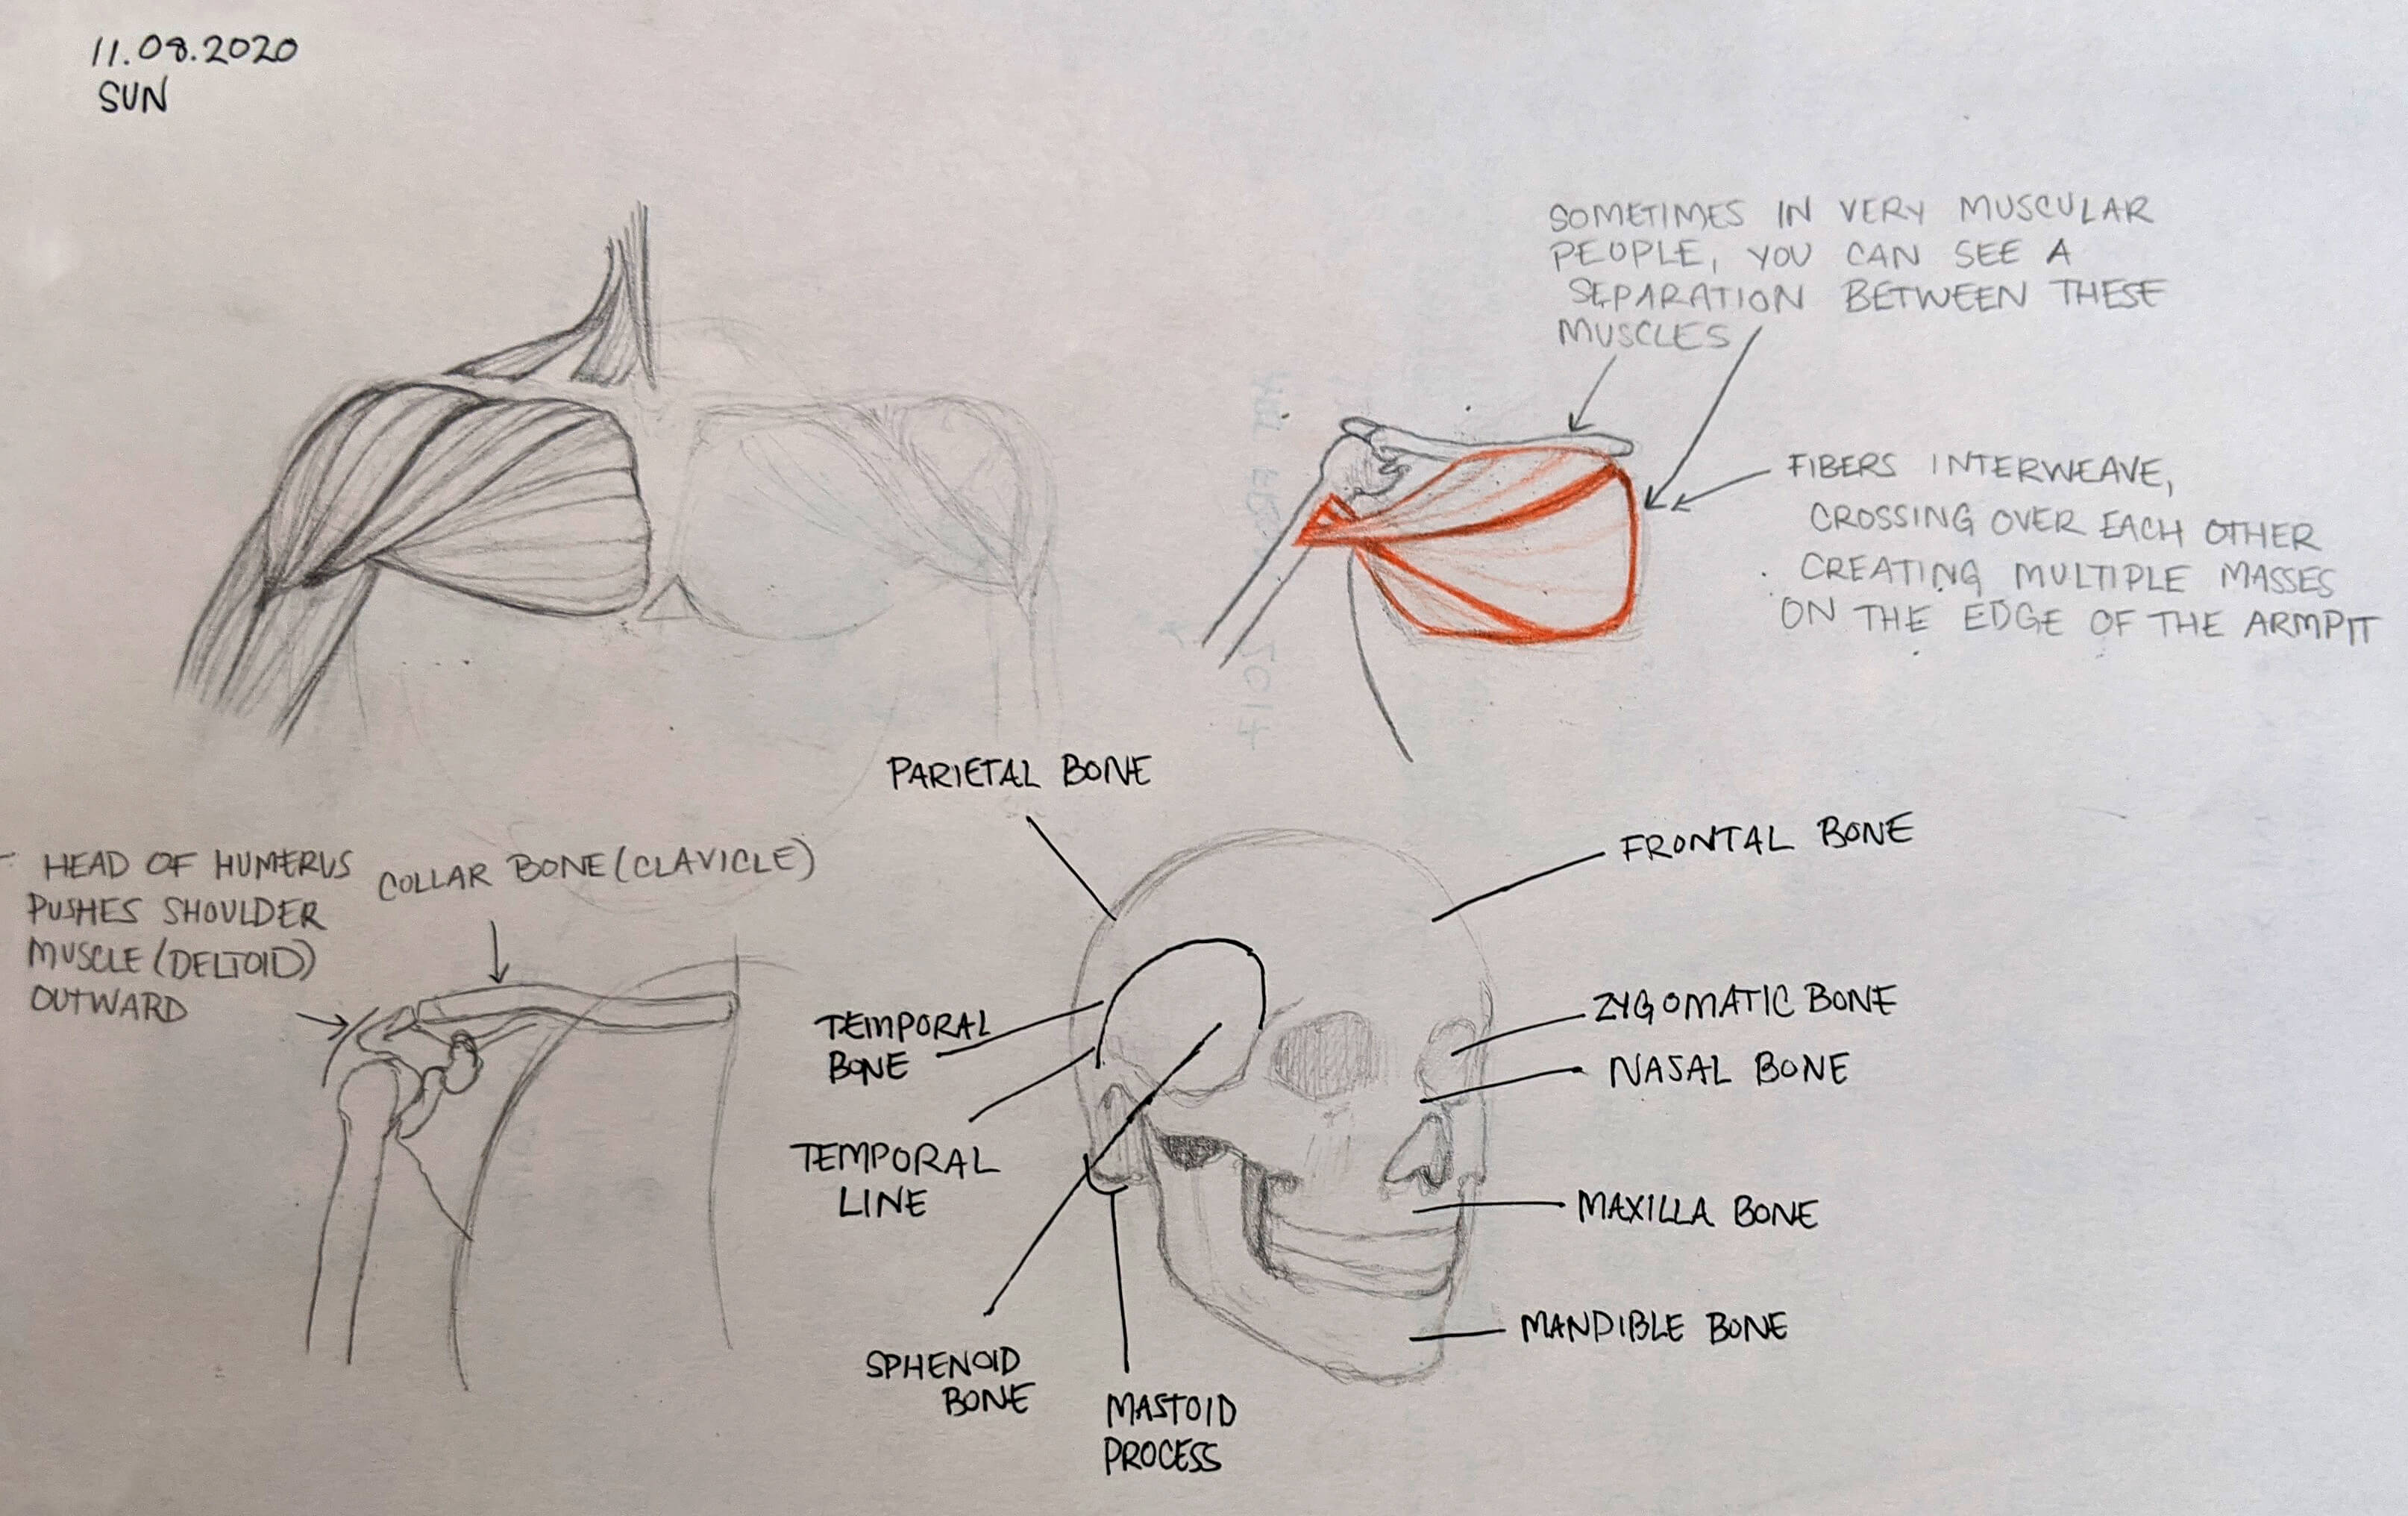 11.08.2020
SUN
SOMETIMES IN VERY MUSCULAR
PEOPLE, YOU CAN SEE A
SEPARATION BETWEEN THESE
MUSCLES
FIBERS INTERWEAVE,
CROSSING OVER EACH OTHER
CREATING MULTIPLE MASSES
ON THE EDGE OF THE ARMPIT
HEAD OF HUMERUS
PUSHES SHOULDER
MUSCLE (DELTOID)
OUTWARD
COLLAR BONE (CLAVICLE)
PARIETAL BONE
FRONTAL BONE
TEMPORAL
BONE
ZYGOMATIC BONE
NASAL BONE
TEMPORAL
LINE
MAXILLA BONE
MANDIBLE BONE
SPHENOID
BONE
MASTOID
PROCESS